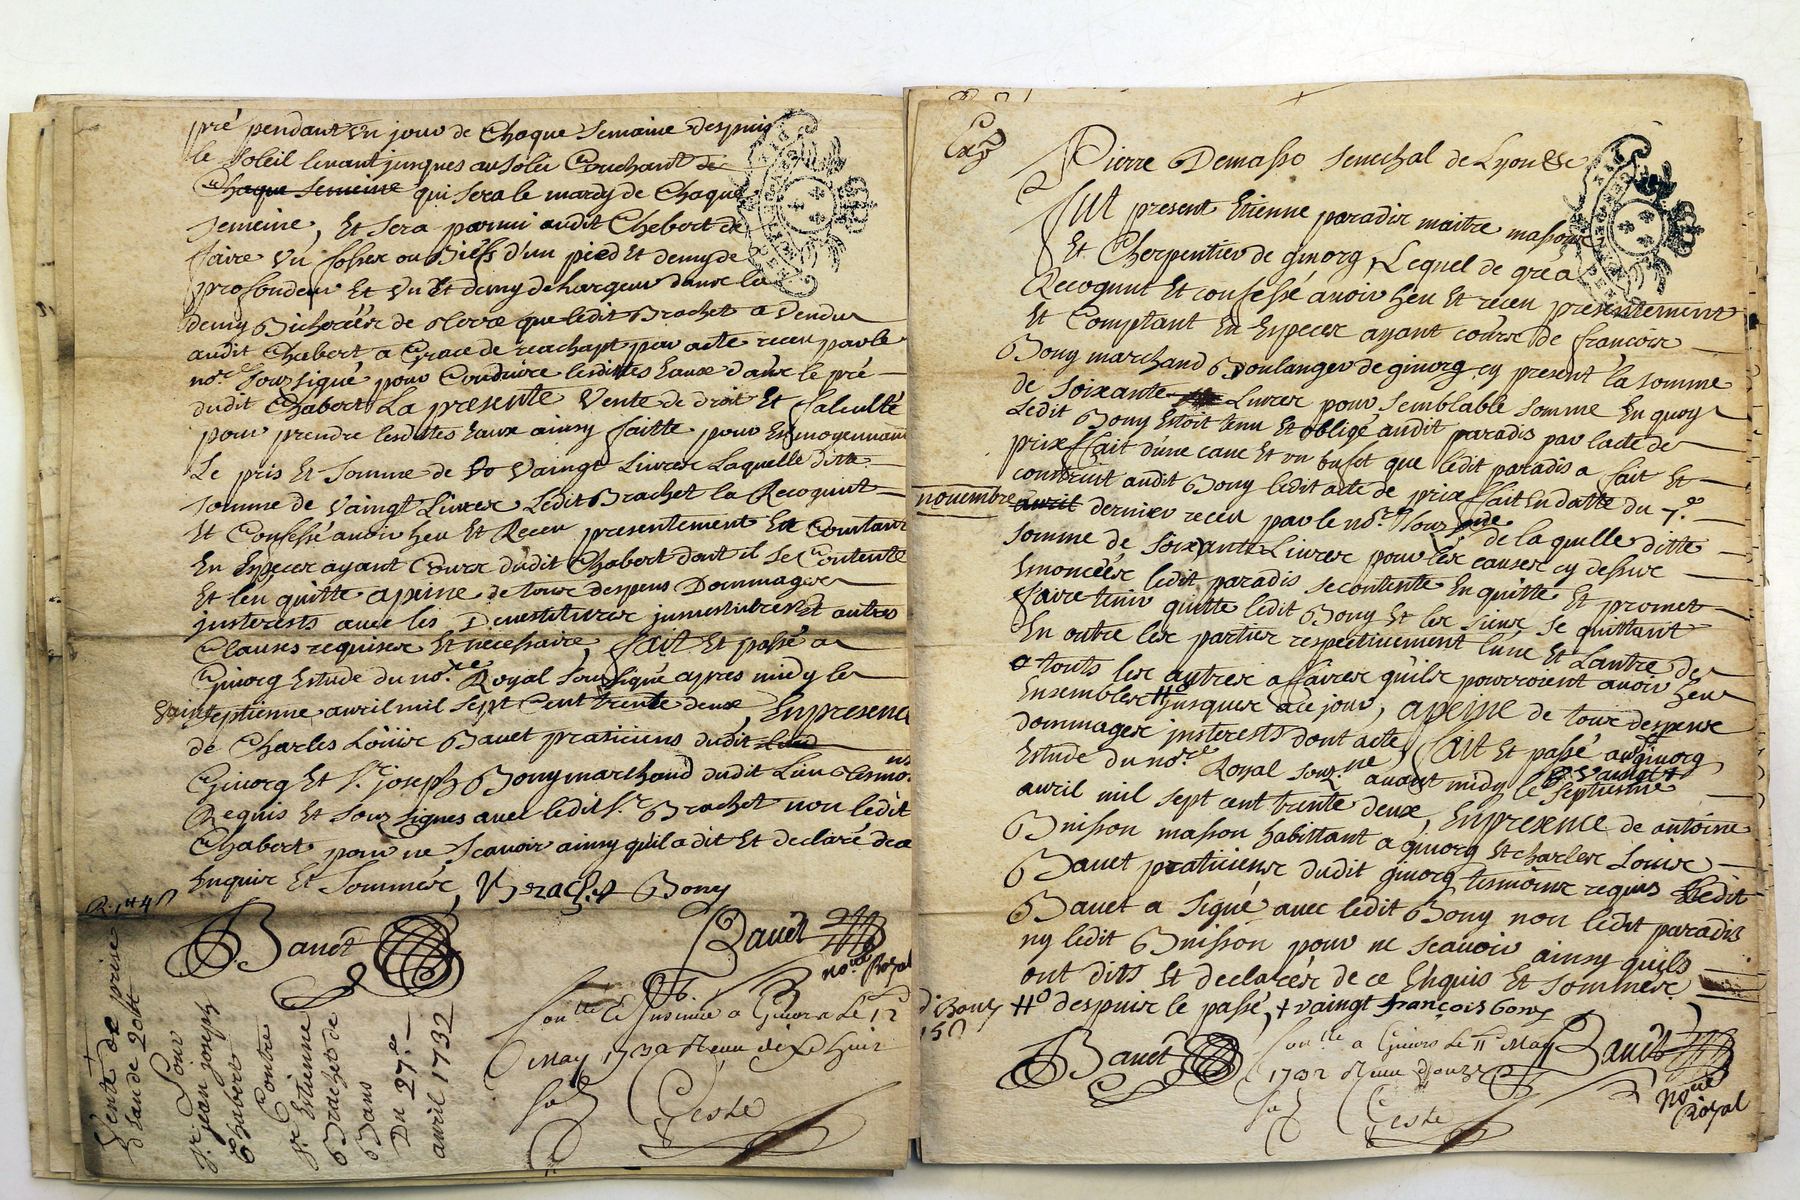 pré pendant un jour de Chaque Semaine despuis
le Soleil levant jusques au Solei Couchant de
Chaque Semeine qui sera le mardy de Chaque
Semeine, Et Sera parmi audit Chebert de
faire un fosser ou Bieff d'un pied Et demy de
profondeur Et un Et demy de largeur dans la
demy Bicherée de que ledit Brachet a Vendu
audit Chebert a Grace de reachapt par acte receu par le
no.re Sousigné pour Conduire lesdittes Eaux dans le pré
dudit Chabert La presente Vente de droit Et faculté
pour prendre lesdittes Eaux ainsy faitte pour Et moyennant
Le pris Et Somme de Vaingt Livres Laquelle ditte
Somme de Vaingt Livres Ledit Brachet la Recogneut
Et Confessé avoir heu Et Receu presentement En Contant
En Especes ayant Cours dudit Chabert dont il se Contente
Et l'en quitte apeine de tous despens Dommages
justerests avec les Devestitures jnvestitures Et autres
Clauses requises Et necessaire, fait Et passé a
Givorg Estude du no.re Royal Sousigné apres midy le
Vaintseptienne avril mil sept Cent trente deux, En presence
de Charles Loüis Bavet praticiens dudit
Givorg Et s.r joseph Bony marchand dudit Lieu tesmo.ns
Requis Et Sousignes avec ledit s.r Brachet non ledit
Chabert pour ne Scavoir ainsy qu'il a dit Et declaré de ce
Enquis Et Sommés, Brachet Bony
Bavet
Bavet
no.re Royal
Con.lle Et Insinué a Givors le 12
May 1732 Receu dix huit
Geste
Vente de prise
d'eau de
Pour
s.r jean joseph
Chebert
Contre
s.r Estienne
Brachet de
Bans
Du 27.e
avril 1732
Exp
Pierre Demasso Senechal de Lyon &c
fut present Etienne paradis maitre masson
Et Cherpentier de givorg, Lequel de gré a
Recogneut Et confessé avoir heu Et receu presentement
Et Comptant En Especes ayant cours de francois
Bony marchand Boulanger de givorg cy present la somme
de Soixante Livres pour semblable somme En quoy
Ledit Bony Estoit tenu Et obligé audit paradis par lacte de
prixffait d'une cave Et un bufet que ledit paradis a fait Et
construit audit Bony ledit acte de prixffait En datte du 7.e
novembre avril dernier receu par le no.re Sousigné de laquelle ditte
Somme de Soixante Livres pour les causes cy dessus
Enoncées ledit paradis se contente En quitte Et promet
faire tenir quitte ledit Bony Et les siens Se quittant
En outre les parties respectivement l'une Et Lautre de
touts les autres affaires qu'ils pourroient avoir heu
Ensembles # jusques a ce jour, apeine de tous despens
dommages justerests dont acte, fait Et passé audit givorg
Estude du no.re Royal sous.ne avant midy le vaingt septienne
avril mil sept cent trente deux, En presence de antoine
Buisson masson habittant a givorg Et charles Louis
Bavet praticiens dudit givorg tesmoins requis Ledit
Bavet a signé avec ledit Bony non ledit paradis
ny ledit Buisson pour ne scavoir ainsy quils
ont dits Et declarés de ce Enquis Et Sommés
# despuis le passé, + vaingt françois bony
Bavet
Bavet
no.re Royal
Con.lle a Givors le 11 May
1732 Receu douze s
Geste